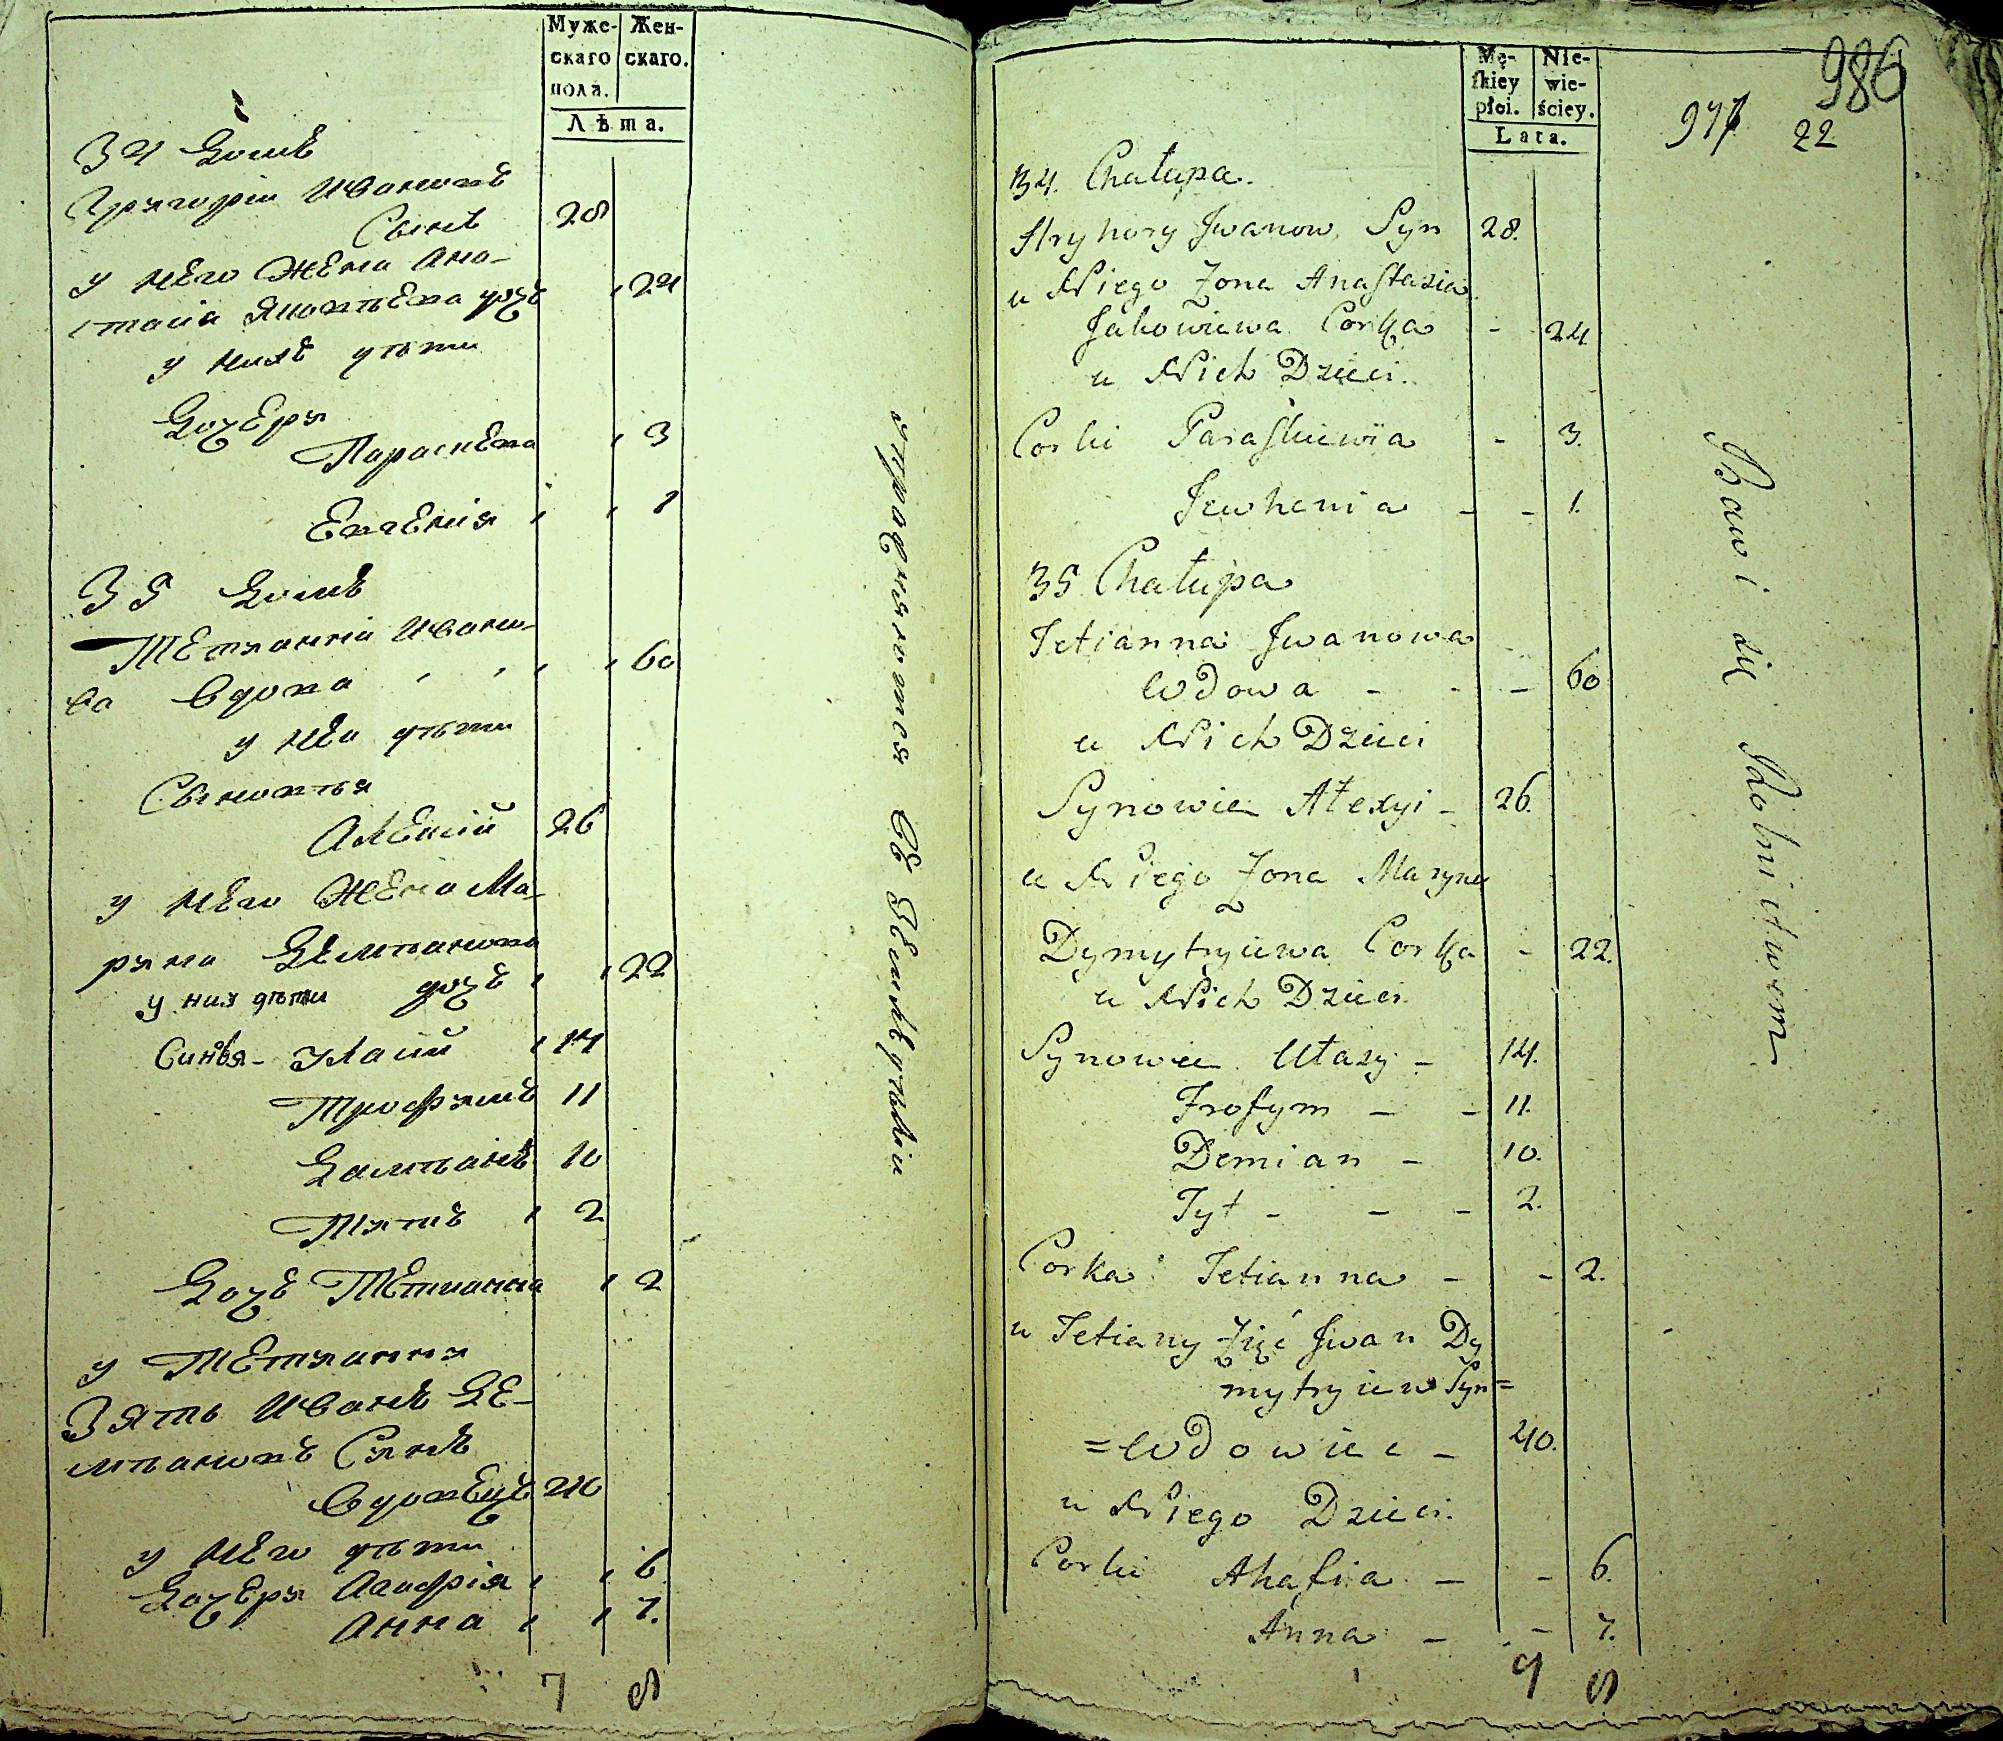 Муже-
скаго
пола.
Жен-
скаго.
Лѣта.
34 Домъ
Григорій Ивановъ
Сынъ 28
у него Жена Ана-
стасія Яковлева дочь 24
у нихъ дѣти
Дочери
Параскева 3
Евгенія 1
35 Домъ
Тетянна Ивано-
ва Вдова 60
у неи дѣти
Сыновья
Алексій 26
у него Жена Ма-
рина Демянова
дочь 22
у них дѣти
Синовья Уласій 14
Трофимъ 11
Дамянъ 10
Титъ 2
Дочь Тетианна 2
у Тетянни
Зять Иванъ Де-
мяновъ Синъ
Вдовецъ 40
у него дѣти
Дочери Агафія 6
Анна 7.
7 8
упражняются въ Земледѣліи
Mę-
ſkiey
płci.
Nie-
wie-
ściey.
Lata.
986
22
34. Chałupa.
Hryhory Jwanow Syn 28.
u Niego Żona Anastazia
Jakowiewa Corka - 24
u Nich Dzieci.
Corki Paraskiewia - 3.
Jewhenia - - 1.
35 Chałupa
Tetianna Jwanowa
Wdowa - - - 60
u Nich Dzieci
Synowie Ałexyi - 26.
u Niego Żona Maryna
Dymytryiewa Corka - 22.
u Nich Dzieci
Synowie Ułasy - 14.
Trofym - - 11.
Demian - 10.
Tyt - - - 2.
Corka Tetianna - - 2.
u Tetiany Zięć Jwan Dy
mytryiew Syn=
=Wdowiec - 40.
u Niego Dzieci.
Corki Ahafia - - 6.
Anna - - 7.
8
Bawi się Rolnictwem